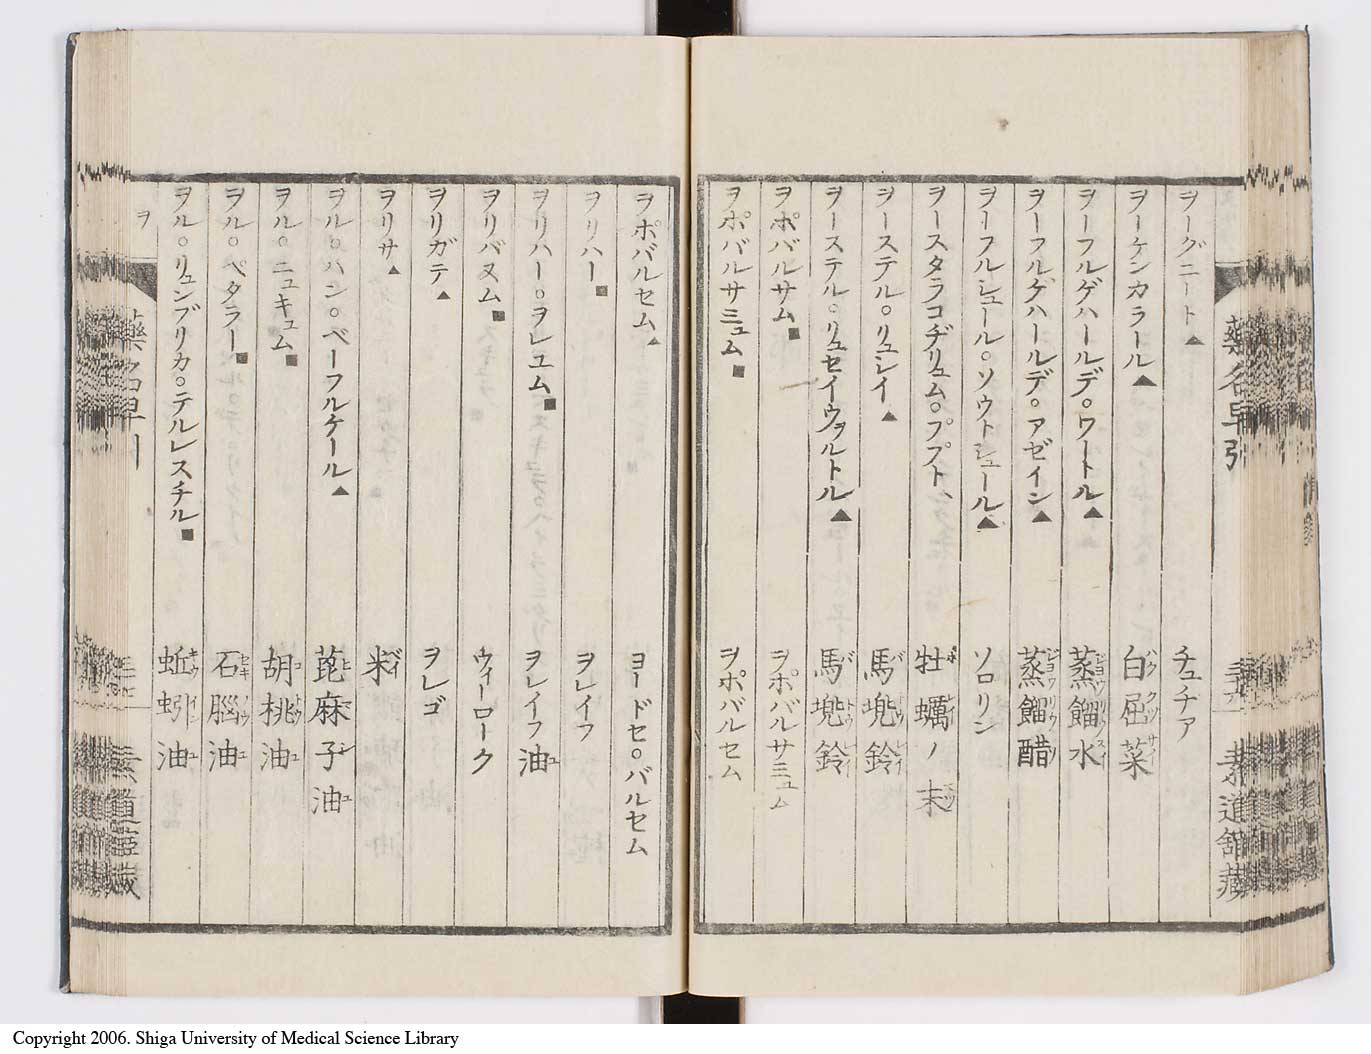 ヲーグニート▲ チュチア
ヲーケンカラール▲ 白屈菜 ハククツサイ
ヲーフルゲハールデ。ワートル▲ 蒸餾水 ジョウリウスイ
ヲーフルゲハールデ。アゼイン▲ 蒸餾醋
ヲーフルシュール。ソウトシュール▲ ソロリン
ヲースタラコヂリュム。ププト、 牡蠣ノ末
ヲーステル。リュレイ▲ 馬兠鈴
ヲーステル。リュセイウヲルトル▲ 馬兠鈴
ヲポバルサム■ ヲポバルサミュム
ヲポバルサミュム■ ヲポバルセム
ヲポバルセム▲ ヨードセ。バルセム
ヲリハー■ ヲレイフ
ヲリハー。ヲレユム■ ヲレイフ油
ヲリバヌム■ ウィーローク
ヲリガテ▲ ヲレゴ
ヲリサ▲ 米 ベイ
ヲル。ハン。ベーフルケール▲ 蓖麻子油
ヲル。ニュキュム■ 胡桃油
ヲル。ペタラー■ 石腦油
ヲル。リュンブリカ。テルレスチル■ 蚯蚓油
ヲ
Copyright 2006. Shiga University of Medical Science Library